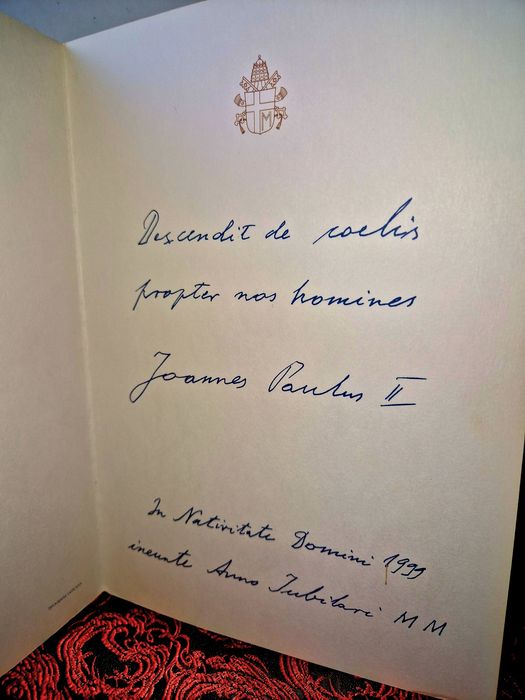 M
Descendit de coelis
propter nos homines
Joannes Paulus II
In Nativitate Domini 1999
ineunte Anno Iubilari M M